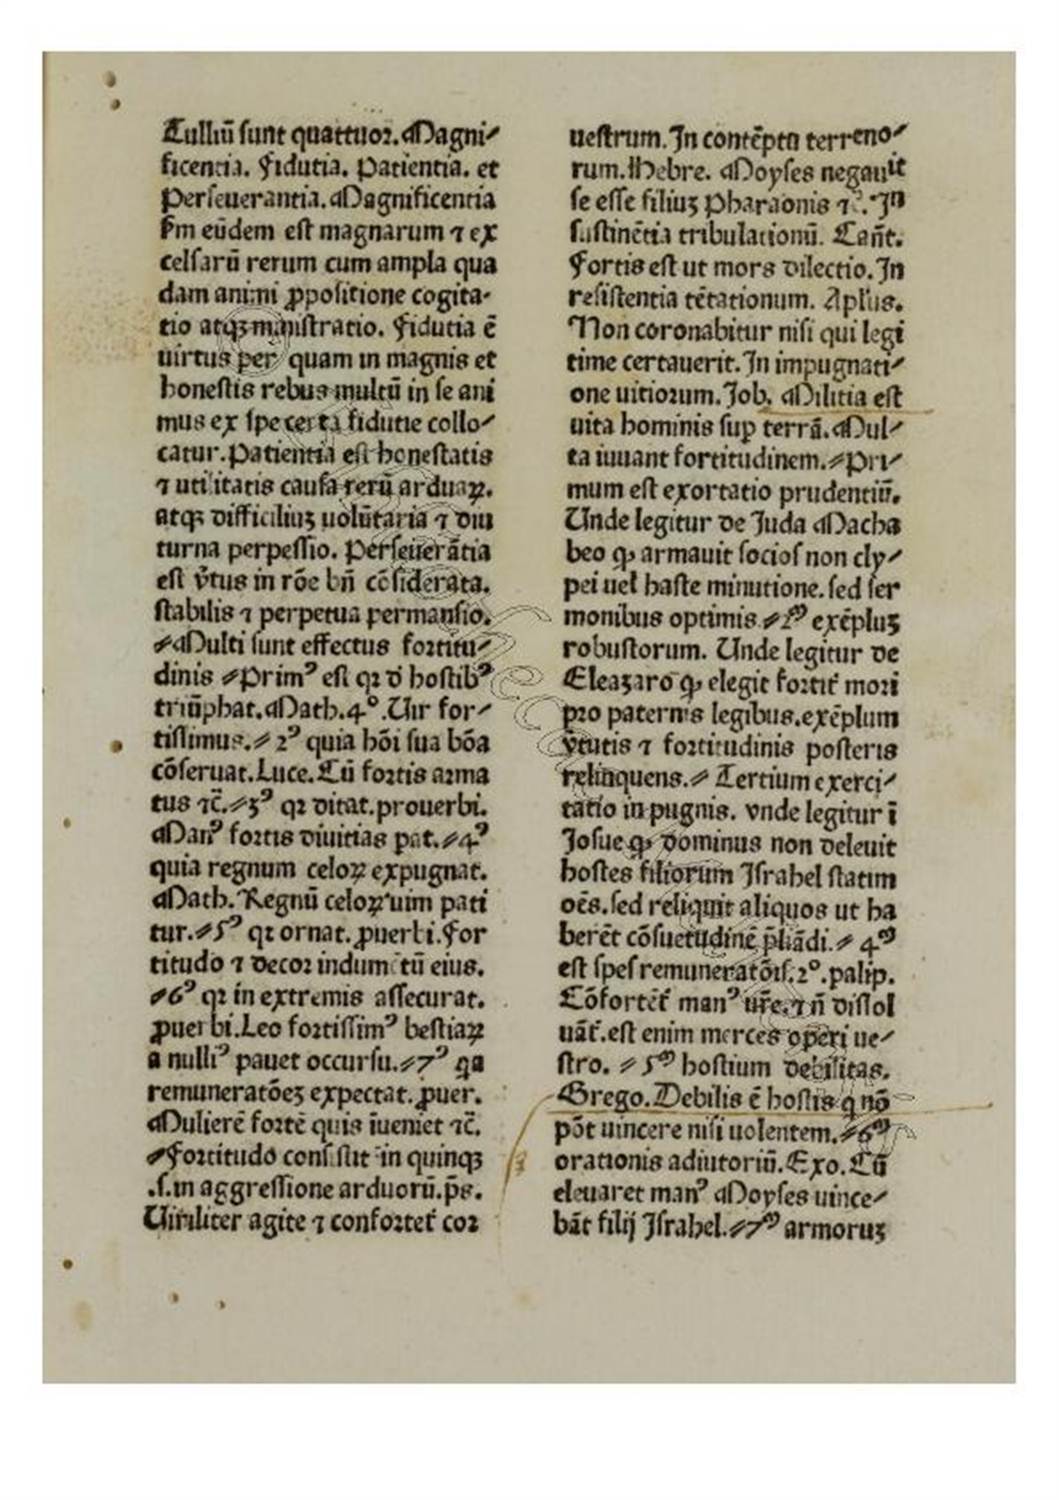 Tulliū sunt quattuor. Magni⸗
ficentia. Fidutia. Patientia. et
Perseuerantia. Magnificentia
ẜm eūdem est magnarum ⁊ ex
celsarū rerum cum ampla qua
dam animi ꝓpositione cogita⸗
tio atqꝫ
uirtus per quam in magnis et
honestis rebus multū in se ani
mus ex spe certa fidutie collo⸗
catur. Patientia est honestatis
⁊ utilitatis causa rerū arduaꝝ.
atqꝫ difficiliuꝫ uolūtaria ⁊ diu
turna perpessio. Perseuerātia
est v̾tus in rōe bn̄ cōsiderata.
stabilis ⁊ perpetua permansio.
⸗Multi sunt effectus fortitu⸗
dinis ⸗Primꝰ est qꝛ d̄ hostibꝰ
triūphat. Math. 4°. Uir for⸗
tissimus.⸗ 2ꝰ quia hōi sua bōa
cōseruat. Luce. Cū fortis arma
tus ⁊c̄.⸗3ꝰ qꝛ ditat. prouerbi.
Manꝰ fortis diuitias pat.⸗4ꝰ
quia regnum celoꝝ expugnat.
Math. Regnū celoꝝ uim pati
tur.⸗5ꝰ qꝛ ornat. ꝓuerbi. For
titudo ⁊ decor indumētū eius.
⸗6ꝰ qꝛ in extremis assecurat.
ꝓuerbi. Leo fortissimꝰ bestiaꝝ
a nulliꝰ pauet occursu.⸗7ꝰ qa
remuneratōeꝫ expectat. ꝓuer.
Mulierē fortē quis iueniet ⁊c̄.
⸗Fortitudo consistit in quinqꝫ
.s. in aggressione arduorū. p̄s.
Uiriliter agite ⁊ confortet̉ cor
uestrum. In contēptu terreno⸗
rum. Hebre. Moyses negauit
se esse filiuꝫ Pharaonis ⁊c̄. In
sustinētia tribulationū. Cant̄.
Fortis est ut mors dilectio. In
resistentia tētationum. Apl̄us.
Non coronabitur nisi qui legi
time certauerit. In impugnati⸗
one uitiorum. Job. Militia est
uita hominis suꝑ terrā. Mul⸗
ta iuuant fortitudinem.⸗Pri⸗
mum est exortatio prudentiū.
Unde legitur de Juda Macha
beo ꝙ armauit socios non cly⸗
pei uel haste minutione. sed ser
monibus optimis.⸗2ᵐ exēpluꝫ
robustorum. Unde legitur de
Eleazaro ꝙ elegit fortit̉ mori
pro paternis legibus. exēplum
v̾tutis ⁊ fortitudinis posteris
relinquens.⸗ Tertium exerci⸗
tatio in pugnis. vnde legitur ī
Josue ꝙ dominus non deleuit
hostes filiorum Israhel statim
oēs. sed reliquit aliquos ut ha
berēt cōsuetudinē p̄liādi.⸗ 4ᵐ
est spes remuneratōis. 2°. palip.
Cōfortēt̉ manꝰ ur̄e. ⁊ n̄ dissol
uāt̉. est enim merces operi ue⸗
stro. ⸗ 5ᵐ hostium debilitas.
Grego. Debilis ē hostis q nō
pōt uincere nisi uolentem.⸗6ᵐ
orationis adiutoriū. Exo. Cū
eleuaret manꝰ Moyses uince⸗
bāt filij Israhel.⸗7ᵐ armoruꝫ